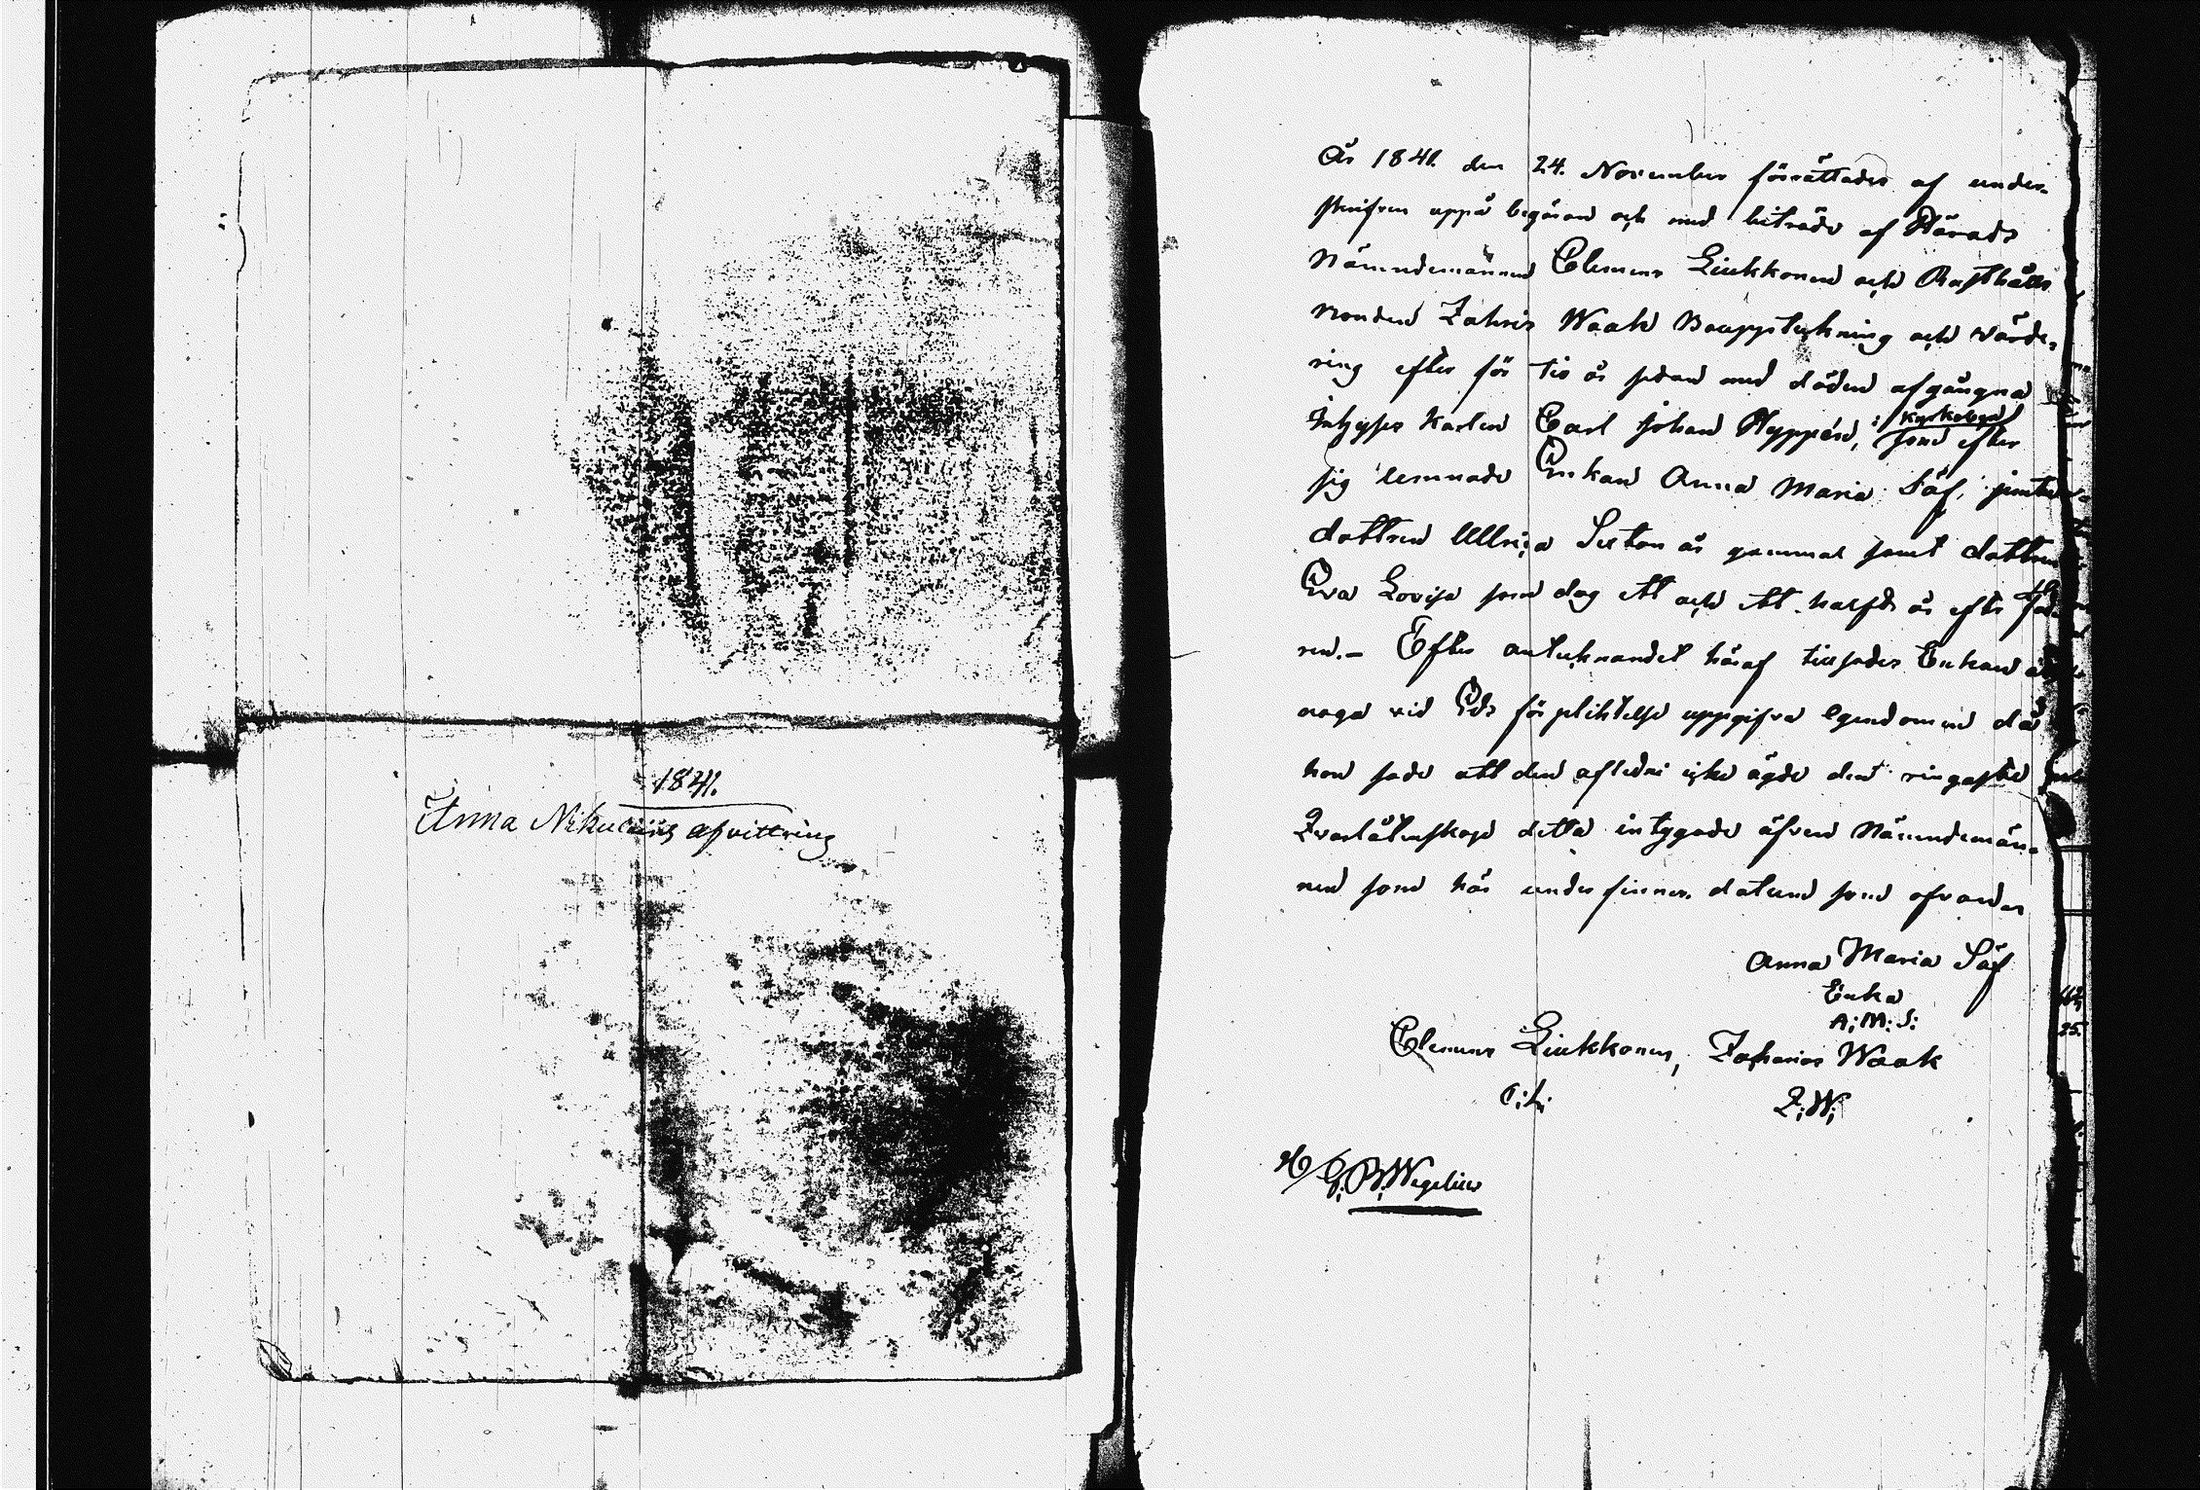 1841.
Anna Nikulains afvittring
År 1841. den 24. November förrättades af under-
skrifven uppå begäran och med biträde af Härads
Nämndemännen Clemens Liukkonen och Rusthålls
bonden Zakris Waak Bouppteckning och värde-
ring efter för tio år sedan med döden afgångna
Inhyses Karlen Carl Johan Hyppén, i Kyrkobyn
som efter
sig lemnade Enkan Anna Maria Säf,
dottren Ullrica Sexton år gammal samt dottren
Eva Lovisa som dog ett och ett halft år efter
ren. – Efter antecknandet häraf tillsades Enkan
noga vid Eds förpliktelse uppgifva egendomen då
hon sade att den aflidne icke ägde den ringaste
Qvarlåtenskap detta intygade äfven Nämndemän-
nen som här under finnes. datum som ofvan
Anna Maria Säf
Enka
A: M: S:
Clemens Liukkonen, Zacharias Waak
C: L: Z: W:
Wegelius